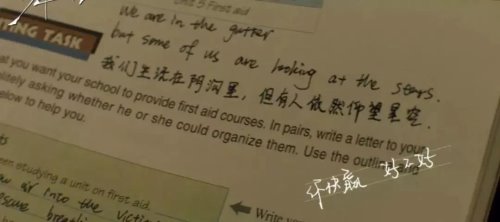 Unit 5 First aid
we are in the gutter
but some of us are looking at the stars.
TING TASK
我们生活在阴沟里，但有人依然仰望星空.
at you want your school to provide first aid courses. In pairs, write a letter to your
litely asking whether he or she could organize them. Use the outlin
elow to help you.
好不好
een studying a unit on first aid.
ow air into the victi
Write